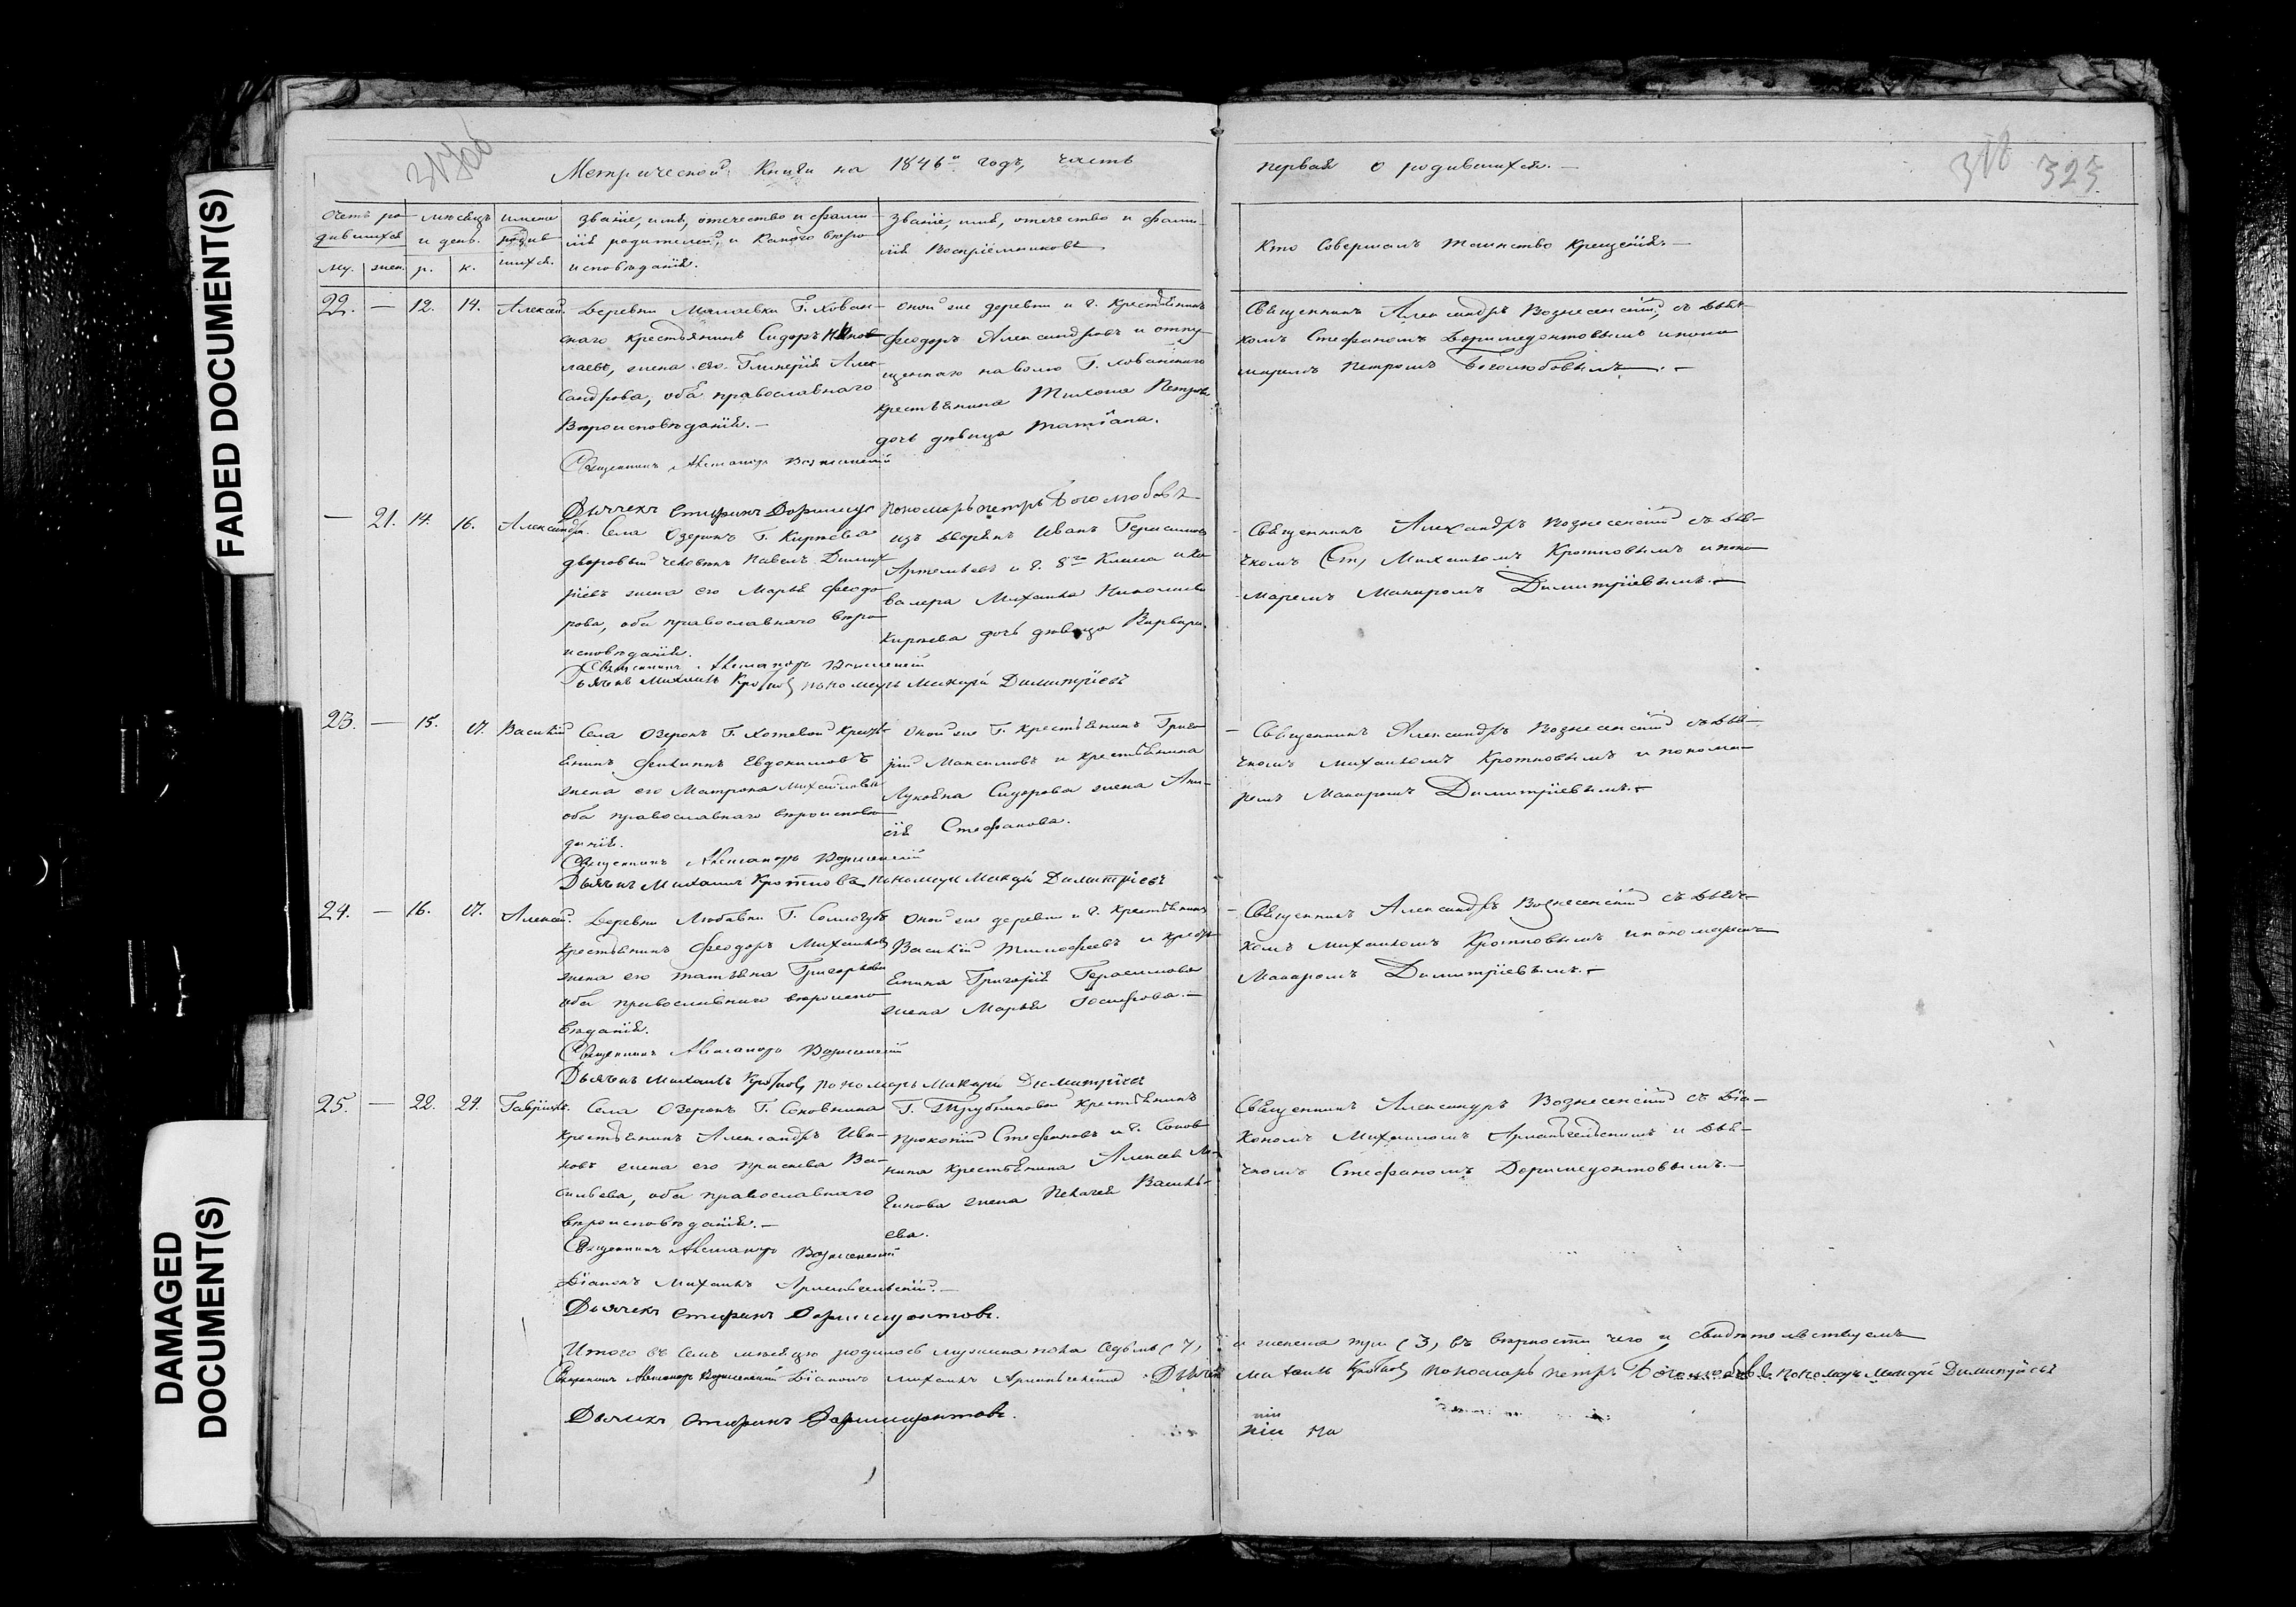 FADED DOCUMENT(S)
DAMAGED
DOCUMENT(S)
318 323.
Метрической Книги на 1846й годъ, часть первая о родившихся. —
Счетъ ро-
дившихся
му. жен.
мѣсяцъ
и день.
р. к.
имена
родив
шихся.
Званіе, имя, отечество и фами-
лія родителей, и какого вѣро-
исповѣданія.
Званіе, имя, отечество и фами-
лія Воспріемниковъ
Кто Совершалъ таинство Крещенія. —
22. — 12. 14. Алексей.
Деревни Г. Хован-
скаго крестьянинъ Сидоръ
лаевъ, жена его Гликерія Алек
сандрова, оба православнаго
Вѣроисповѣданія. —
Священникъ Александръ Вознесенскій
Дьячекъ Стефанъ Пономарь Петръ Боголюбовъ
оной же деревни и г. крестьянинъ
Феодоръ Александровъ и отпу-
щеннаго на волю Г. Хованскаго
крестьянина Тихона Петрова
дочь дѣвица Татіана.
Священникъ Александръ Вознесенскій, съ дьяч-
комъ Стефаномъ Доримедонтовымъ и поно
маремъ Петромъ Боголюбовымъ. —
— 21. 14. 16. Александра.
Села Озерокъ Г. Киреева
дворовый человекъ Павелъ Димит
ріевъ жена его Марья Феодо
рова, оба православнаго вѣро-
исповѣданія.
Священникъ Александръ Вознесенскій
Дьячекъ Михаилъ Кротковъ пономарь Макарій Димитріевъ
изъ дворянъ Иванъ Герасимовъ
Артемьевъ и г. 8го Класса и Ка
валера Михаила Николаева
Киреева дочь дѣвица Варвара.
Священникъ Александръ Вознесенскій съ дья-
чкомъ Ст, Михаиломъ Кротковымъ и поно-
маремъ Макаромъ Димитріевымъ. —
23. — 15. 17. Василій
Села Озерокъ Г. Хотевой крест-
янинъ Филиппъ Евдокимовъ
жена его Матрона Михайлова
оба православнаго вѣроисповѣ
данія.
Священникъ Александръ Вознесенскій
Дьячекъ Михаилъ Кротковъ пономарь Макарій Димитріевъ
оной же Г. крестьянинъ Григо
рій Максимовъ и крестьянина
Лукояна Сидорова жена
Стефанова.
Священникъ Александръ Вознесенскій съ дья-
чкомъ Михаиломъ Кротковымъ и понома-
ремъ Макаромъ Димитріевымъ. —
24. — 16. 17. Алексей.
Деревни Любавки Г. Соллогубъ
крестьянинъ Феодоръ Михайловъ
жена его татьяна Григорьева
оба православнаго вѣроиспо-
вѣданія.
Священникъ Александръ Вознесенскій
Дьячекъ Михаилъ Кротковъ пономарь Макарій Димитріевъ
оной же деревни и г. крестьянинъ
Василій Тимофеевъ и крест-
янина Григорія Герасимова
жена Марья Іосифова. —
Священникъ Александръ Вознесенскій съ дьяч-
комъ Михаиломъ Кротковымъ и пономаремъ
Макаромъ Димитріевымъ. —
25. — 22. 24. Гавріилъ.
Села Озерокъ Г. Соковнина
крестьянинъ Александръ Ива-
новъ жена его прасковья Ва-
сильева, оба православнаго
вѣроисповѣданія. —
Священникъ Александръ Вознесенскій
Діаконъ Михаилъ Архангельскій. —
Дьячекъ Стефанъ Доримедонтовъ.
Г. Трубниковой крестьянинъ
Прокопій Стефановъ и г. Соков
нина крестьянина Алексея Ло-
гинова жена Пелагея Василь-
ева.
Священникъ Александръ Вознесенскій съ Діа-
кономъ Михаиломъ Архангельскимъ и дья-
чкомъ Стефаномъ Доримедонтовымъ. —
Итого въ семъ мѣсяцѣ родилось мужеска пола Седьмь (7, и женска три (3, въ вѣрности чего и свидѣтельствуемъ
Священникъ Александръ Вознесенскій Діаконъ Михаилъ Архангельскій Дьячекъ Михаилъ Кротковъ пономарь Петръ Боголюбовъ пономарь Макарій Димитріевъ
Дьячекъ Стефанъ Доримедонтовъ.